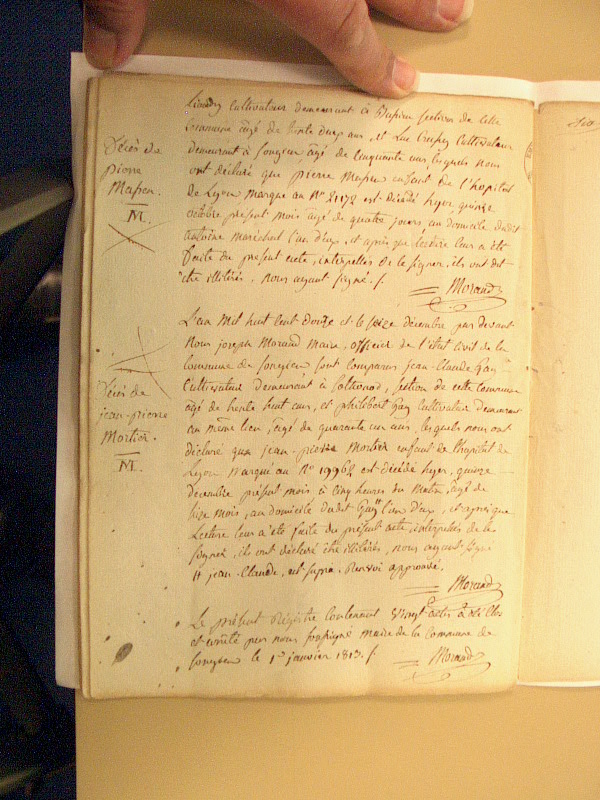 cultivateur demeurant à section de cette
commune âgé de trente deux ans, et Luc Crepez Cultivateur
demeurant à Songieu, âgé de cinquante ans, lesquels nous
ont déclaré que pierre Massen enfant de l'hopital
de Lyon marqué au N° 2172 est décédé hyer, quinze
octobre présent mois âgé de quatre jours au domicile dudit
antoine maréchal l'un d'eux, et après que lecture leur a été
faite du présent acte, interpellés de le signer, ils ont dit
être illitérés, nous ayant signé. /.
Morand
Décès de
pierre
Massen.
M.
L'an mil huit cent douze et le seize décembre par devant
Nous joseph Morand maire, officier de l'état civil de la
Commune de Songieu sont comparus jean-Claude Gay
Cultivateur demeurant à Sothonod, section de cette Commune
âgé de trente huit ans, et philibert Gay cultivateur demeurant
au même lieu, âgé de quarante un ans, lesquels nous ont
déclaré que jean-pierre Mortier enfant de l'hopital de
Lyon marqué au N° 19962 est décédé hyer, quinze
décembre présent mois à cinq heures du matin, âgé de
seize mois, au domicile dudit Gay # l'un d'eux, et après que
Lecture leur a été faite du présent acte, interpellés de le
signer, ils ont déclaré être illitérés, nous ayant signé
# jean-Claude, est supra. Renvoi approuvé.
Morand
Décès de
jean-pierre
Mortier.
M.
Le présent Registre contenant vingt actes a été clos
et arrêté par nous soussigné maire de la commune de
Songieu le 1er janvier 1813. /.
Morand